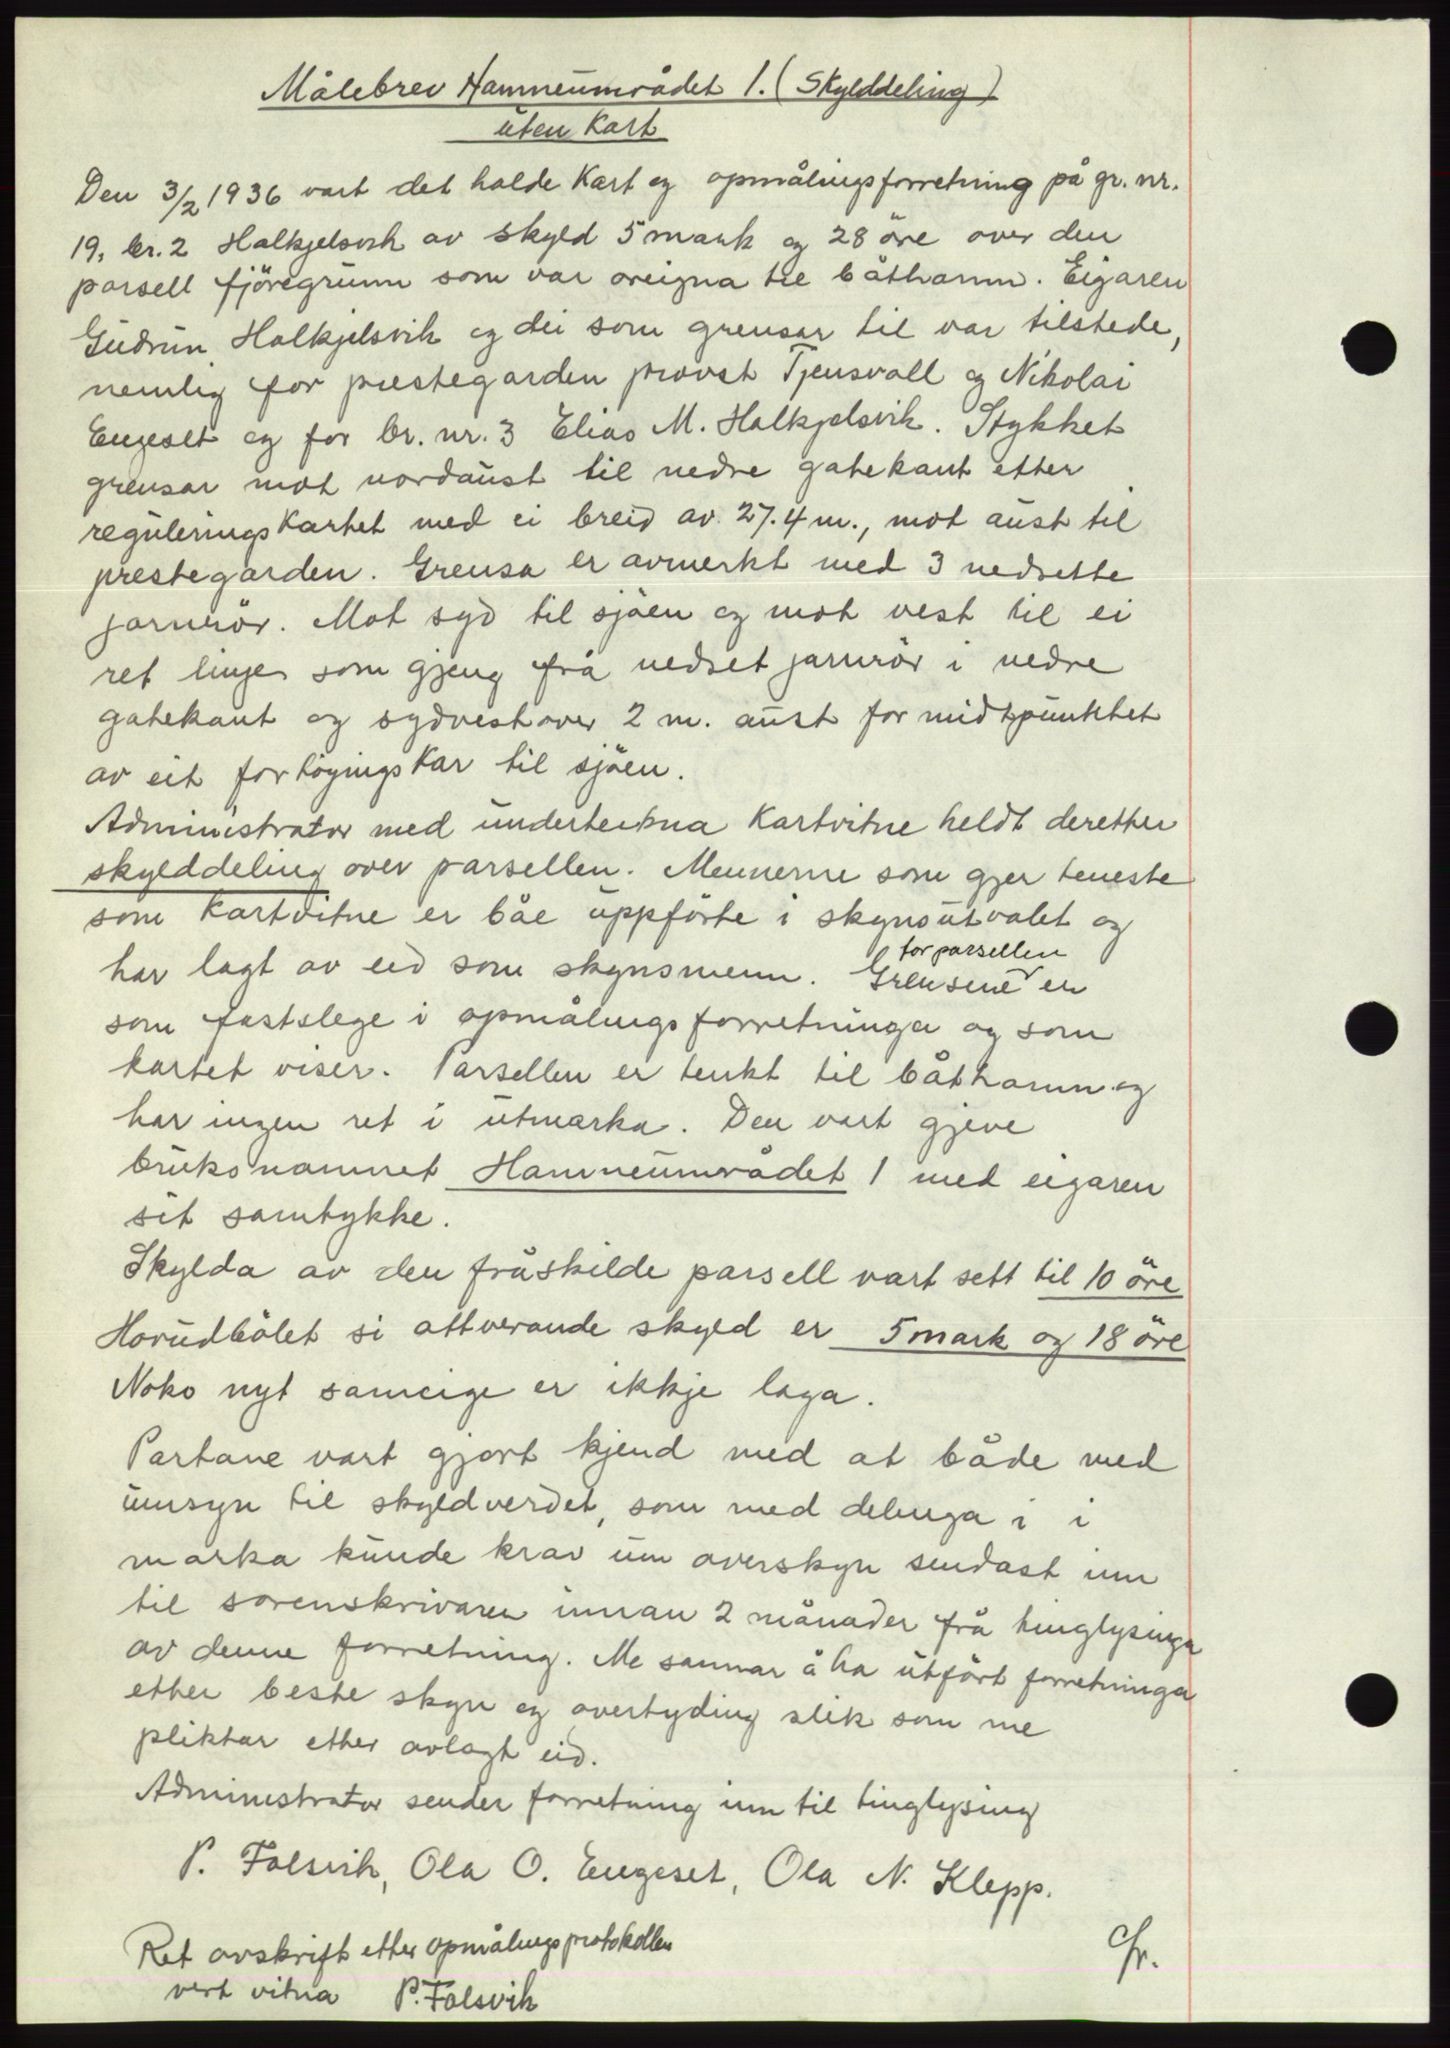 Målebrev Hamneumrådet 1. (Skylddeling)
uten Kart
Den 3/2 1936 vart det halde Kart og opmålingsforretning på gr. nr.
19, br. 2 Halkjelsvik av skyld 5 mark og 28 öre over den
parsell fjöregrunn som var oreigna til båthamn. Eigaren
Gudrun Halkjelsvik og dei som grensar til var tilstede,
nemlig for prestegarden provst Tjensvoll og Nikolai
Engeset og for br. nr. 3 Elias M. Halkjelsvik. Stykket
grensar mot nordaust til nedre gatekant etter
reguleringskartet med ei breid av 27.4 m., mot aust til
prestegarden. Grensa er avmerkt med 3 nedsette
jarnrör. Mot syd til sjöen og mot vest til ei
ret linje som gjeng frå nedset jarnrör i nedre
gatekant og sydvestover 2 m. aust for midtpunktet
av eit fortöyingskar til sjöen.
Administrator med underteikna Kartvitne heldt deretter
skylddeling over parsellen. Mennerne som gjer teneste
som Kartvitne er båe uppförte i skynsutvalet og
har lagt av eid som skynsmenn. Grensene for parsellen er
som fastslege i opmålingsforretninga og som
kartet viser. Parsellen er tenkt til båthamn og
har ingen ret i utmarka. Den vart gjeve
bruksnamnet Hamneumrådet 1 med eigaren
sit samtykke.
Skylda av den fråskilde parsell vart sett til 10 öre
Hovudbölet si attverande skyld er 5 mark og 18 öre
Noko nyt sameige er ikkje laga.
Partane vart gjort kjend med at både med
umsyn til skyldverdet, som med delinga i i
marka kunde krav um overskyn sendast inn
til sorenskrivaren innan 2 månader frå tinglysinga
av denne forretning. Me sannar å ha utfört forretninga
etter beste skyn og overtyding slik som me
pliktar etter avlagt eid.
Administrator sender forretning inn til tinglysing
P. Falsvik, Ola O. Engeset, Ola N. Klepp.
Ret avskrift etter opmålingsprotokollen
vert vitna P. Falsvik